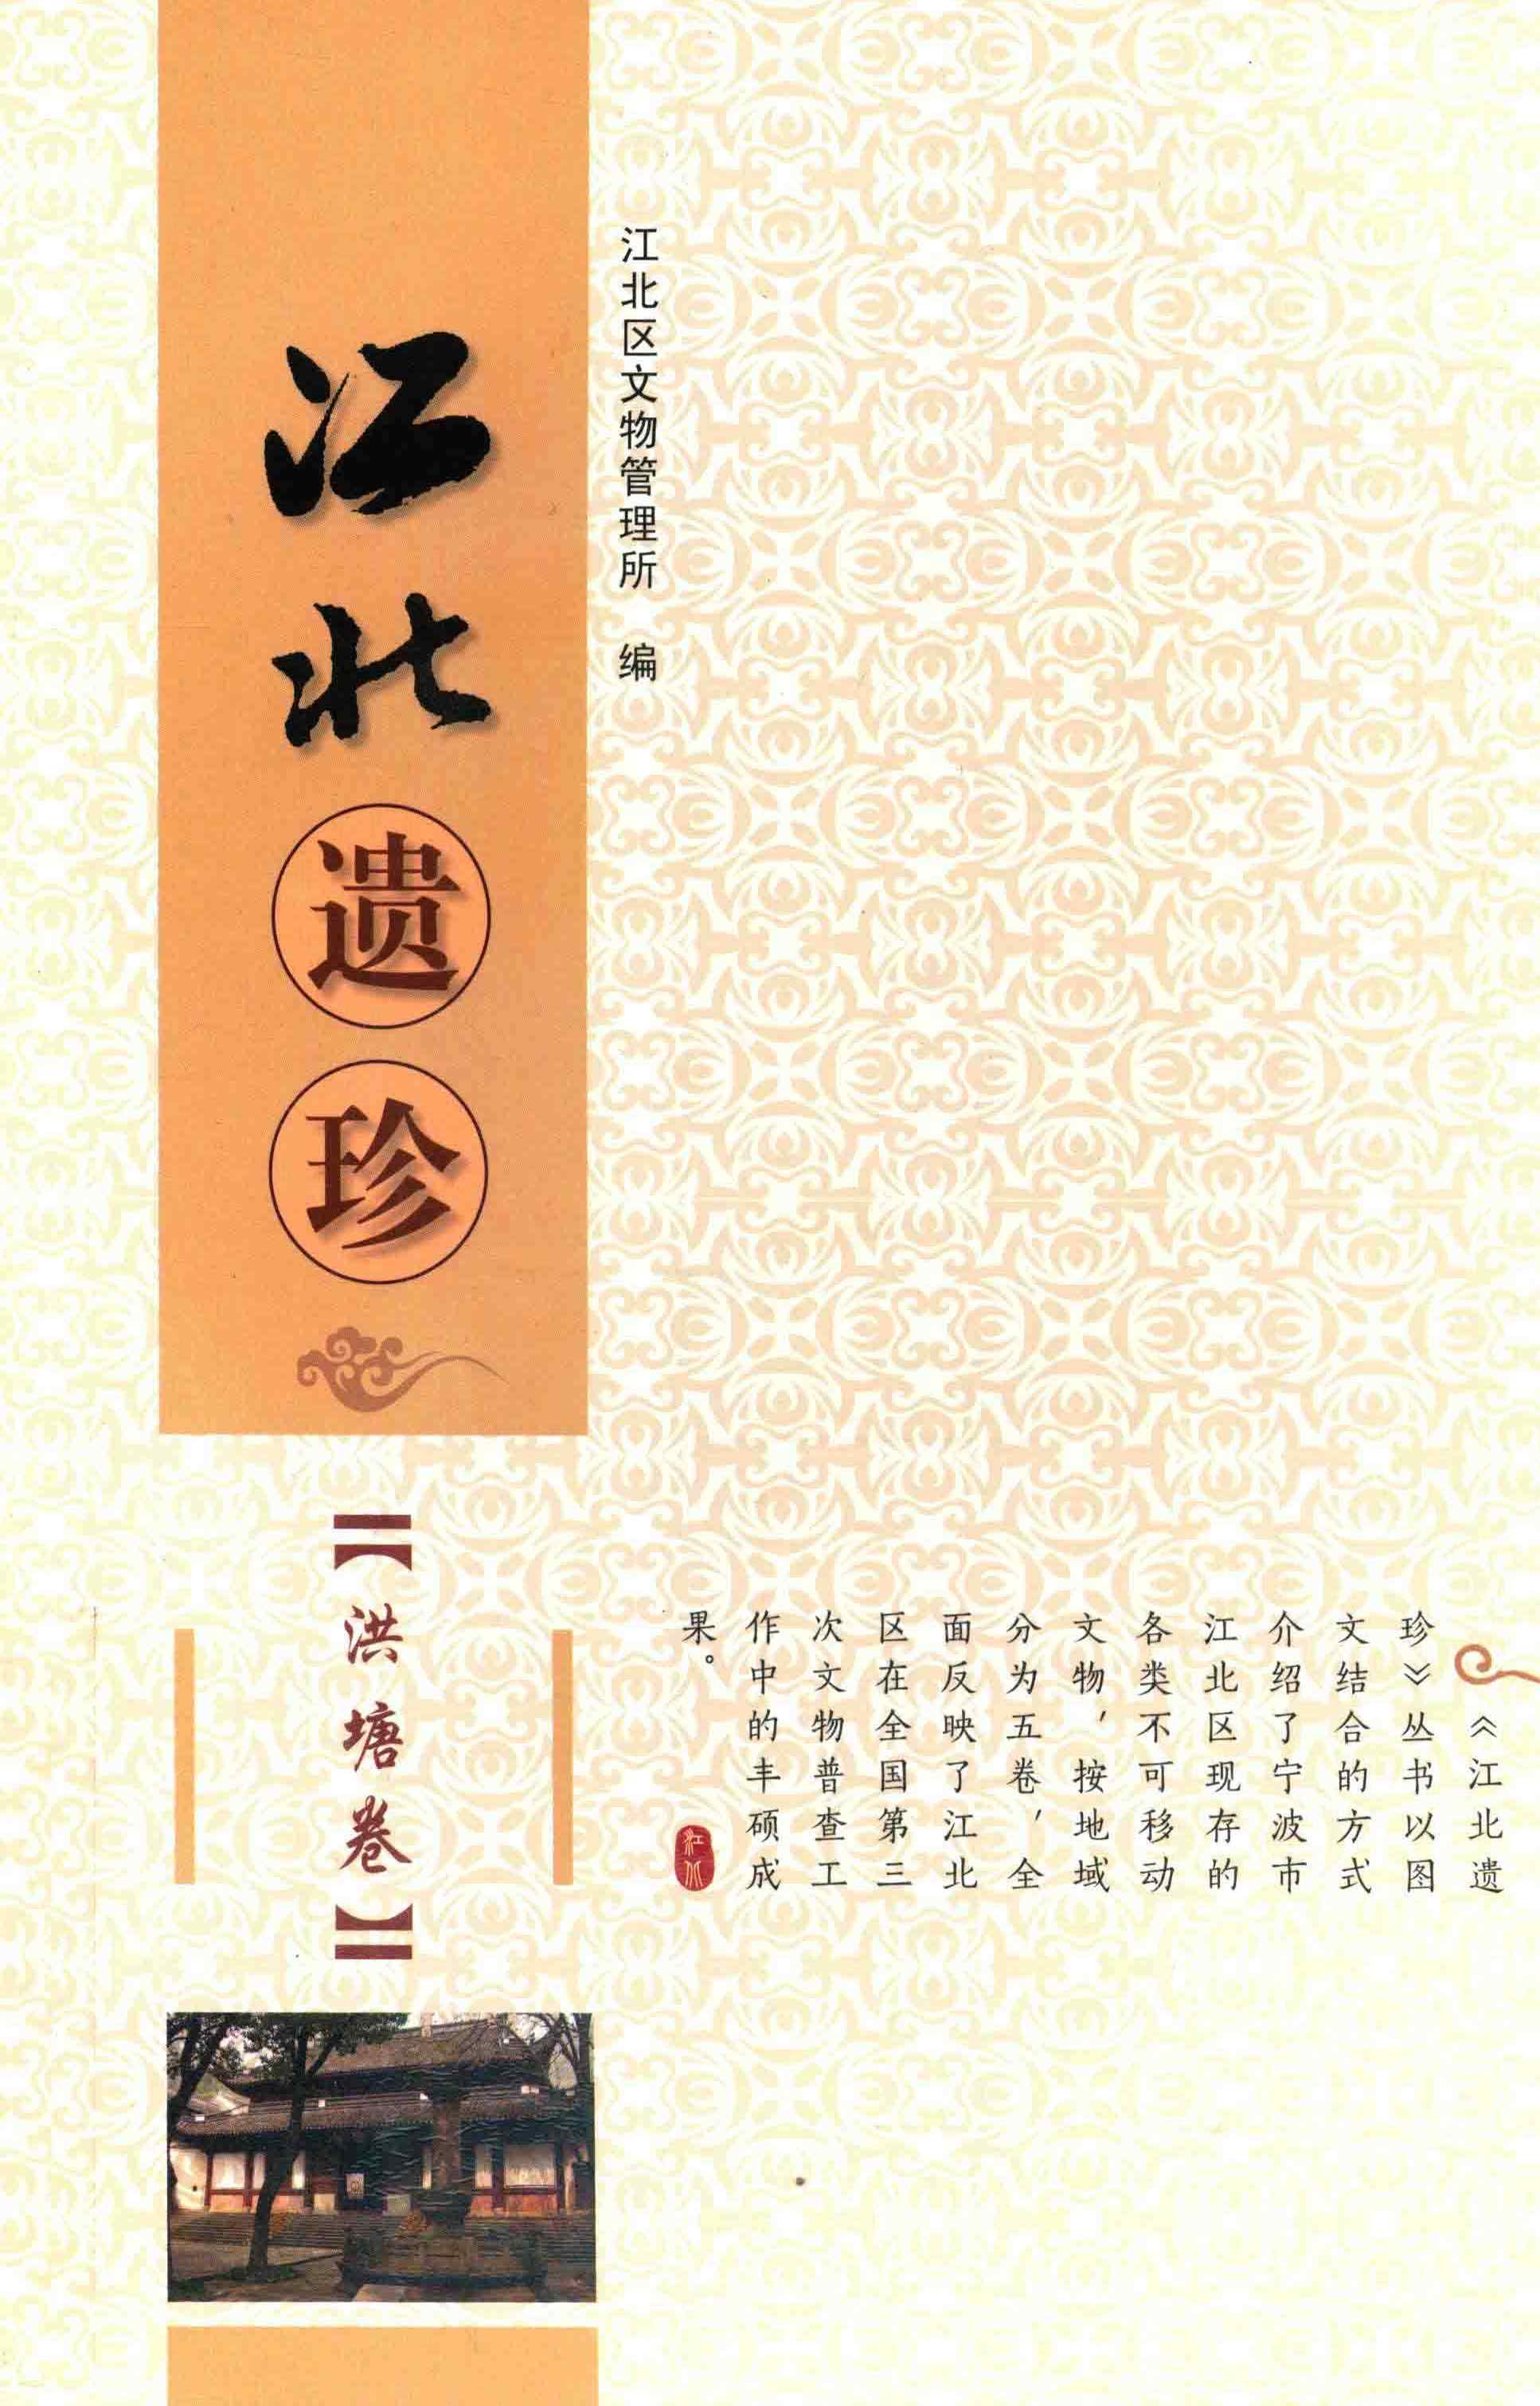 江北遗珍
【洪塘卷】
江北区文物管理所 编
《江北遗
珍》丛书以图
文结合的方式
介绍了宁波市
江北区现存的
各类不可移动
文物，按地域
分为五卷，全
面反映了江北
区在全国第三
次文物普查工
作中的丰硕成
果。
江北